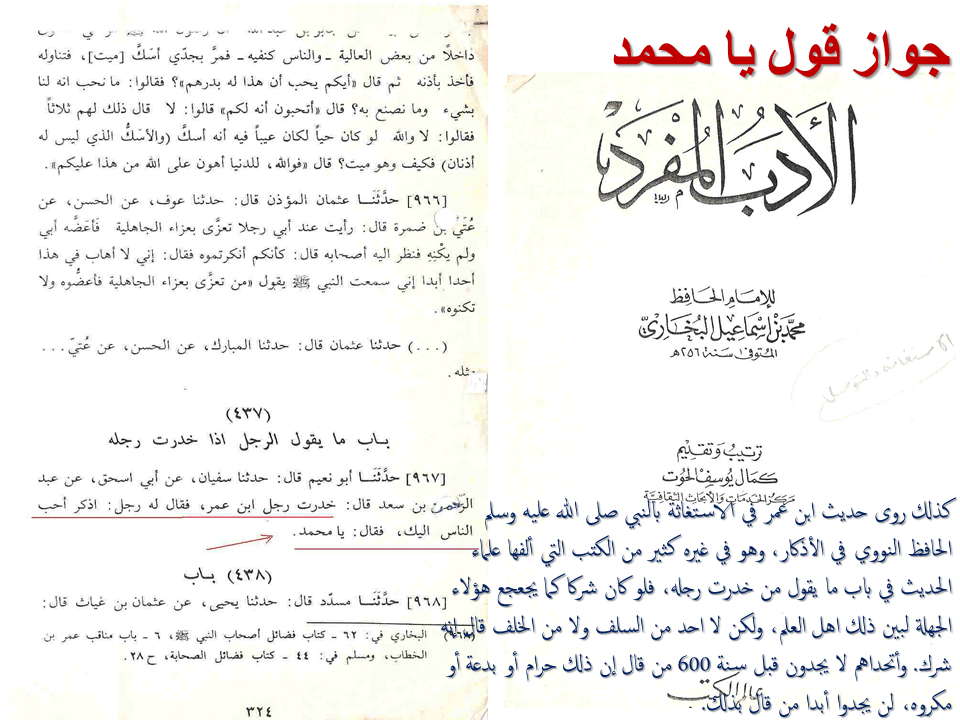 جواز قول يا محمد
الأدب المفرد
للإمام الحافظ
محمد بن إسماعيل البخاري
المتوفى سنة ٢٥٦ هـ
ترتيب وتقديم
كمال يوسف الحوت
مركز الخدمات والأبحاث الثقافية
عالم الكتب
داخلاً من بعض العالية ـ والناس كنفيه ـ فمرَّ بجدّي أسَكَّ [ميت]، فتناوله
فأخذ بأذنه ثم قال «أيكم يحب أن هذا له بدرهم»؟ فقالوا: ما نحب انه لنا
بشيء وما نصنع به؟ قال «أتحبون أنه لكم» قالوا: لا قال ذلك لهم ثلاثاً
فقالوا: لا والله لو كان حياً لكان عيباً فيه أنه أسكَّ (والأسَكُّ الذي ليس له
أذنان) فكيف وهو ميت؟ قال «فوالله، للدنيا أهون على الله من هذا عليكم».
[٩٦٦] حدَّثَنَا عثمان المؤذن قال: حدثنا عوف، عن الحسن، عن
عُتَيّ بن ضمرة قال: رأيت عند أبي رجلا تعزَّى بعزاء الجاهلية فَأعَضَّه أبي
ولم يكْنِهِ فنظر اليه أصحابه قال: كأنكم أنكرتموه فقال: إني لا أهاب في هذا
أحدا أبدا إني سمعت النبي ﷺ يقول «من تعزَّى بعزاء الجاهلية فأعضُّوه ولا
تكنوه».
(...) حدثنا عثمان قال: حدثنا المبارك، عن الحسن، عن عُتيّ...
مثله.
(٤٣٧)
باب ما يقول الرجل اذا خدرت رجله
[٩٦٧] حدَّثَنَا أبو نعيم قال: حدثنا سفيان، عن أبي اسحق، عن عبد
الرحمن بن سعد قال: خدرت رجل ابن عمر، فقال له رجل: اذكر أحب
الناس اليك، فقال: يا محمد.
(٤٣٨) باب
[٩٦٨] حدَّثَنَا مسدّد قال: حدثنا يحيى، عن عثمان بن غياث قال:
البخاري في: ٦٢ ـ كتاب فضائل أصحاب النبي ﷺ، ٦ ـ باب مناقب عمر بن
الخطاب، ومسلم في: ٤٤ ـ كتاب فضائل الصحابة، ح ٢٨.
٣٢٤
كذلك روى حديث ابن عمر في الاستغاثة بالنبي صلى الله عليه وسلم
الحافظ النووي في الأذكار، وهو في غيره كثير من الكتب التي ألفها علماء
الحديث في باب ما يقول من خدرت رجله، فلو كان شركا كما يجعجع هؤلاء
الجهلة لبين ذلك اهل العلم، ولكن لا احد من السلف ولا من الخلف قال إنه
شرك. وأتحداهم لا يجدون قبل سنة 600 من قال إن ذلك حرام أو بدعة أو
مكروه، لن يجدوا أبدا من قال بذلك.